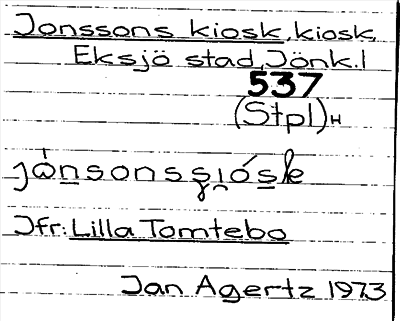 Jonssons kiosk, kiosk,
Eksjö stad, Jönk.l
537
(Stpl)H
Jfr: Lilla Tomtebo
Jan Agertz 1973